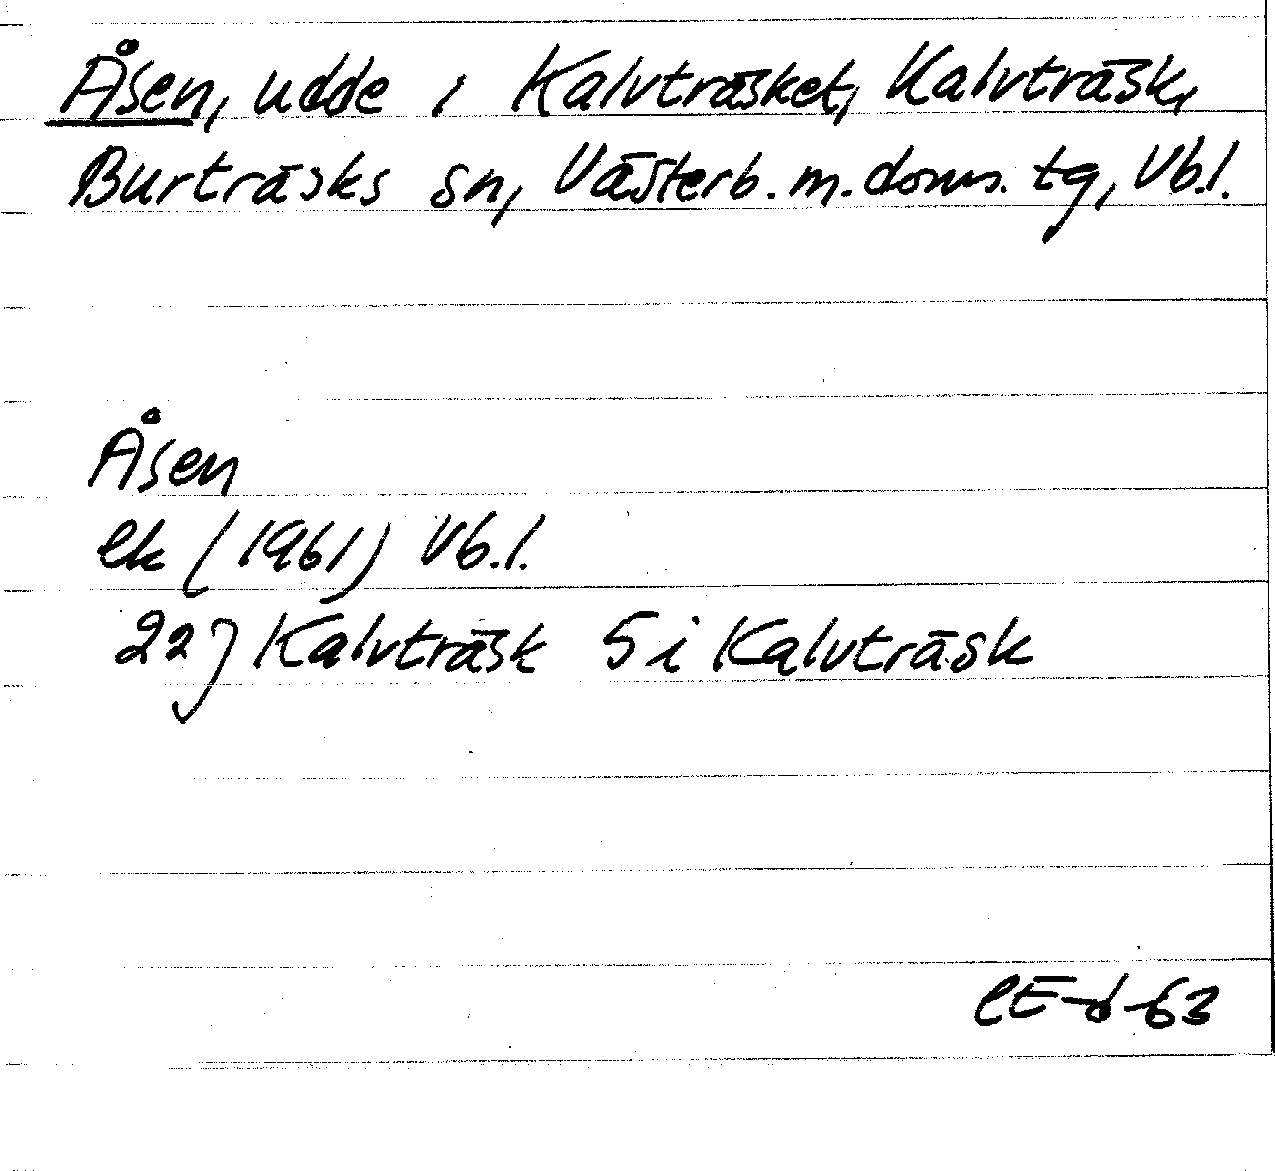 Åsen, udde i Kalvträsket, Kalvträsk,
Burträsks sn, Västerb. m. doms. tg, Vb.l.
Åsen
ek (1961) Vb.l.
22J Kalvträsk 5i Kalvträsk
CE-d-63